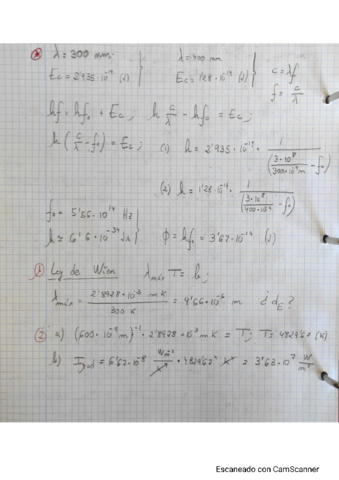 λ = 300 nm. λ = 400 nm
Ec = 2'935·10⁻¹⁹ (J) Ec = 1'28·10⁻¹⁹ (J) c = λf
f = c/λ
hf = hf₀ + Ec ; h c/λ - hf₀ = Ec ;
h (c/λ - f₀) = Ec ; (1) h = 2'935·10⁻¹⁹ · 1/(3·10⁸/300·10⁻⁹m - f₀)
(2) h = 1'28·10⁻¹⁹ · 1/(3·10⁸/400·10⁻⁹ - f₀)
f₀ = 5'56·10¹⁴ Hz
h ≈ 6'6·10⁻³⁴ Js ϕ = hf₀ = 3'67·10⁻¹⁹ (J)
1) Ley de Wien λmáx T = b ;
λmáx = 2'8928·10⁻³ m K / 300 K = 9'66·10⁻⁶ m ¿ dE ?
2) a) (600·10⁻⁹ m)⁻¹ · 2'8928·10⁻³ m K = T ; T = 4829'67 (K)
b) = 5'67·10⁻⁸ W m⁻²/K⁴ · 4829'67⁴ K⁴ = 3'63·10⁷ W/m²
Escaneado con CamScanner